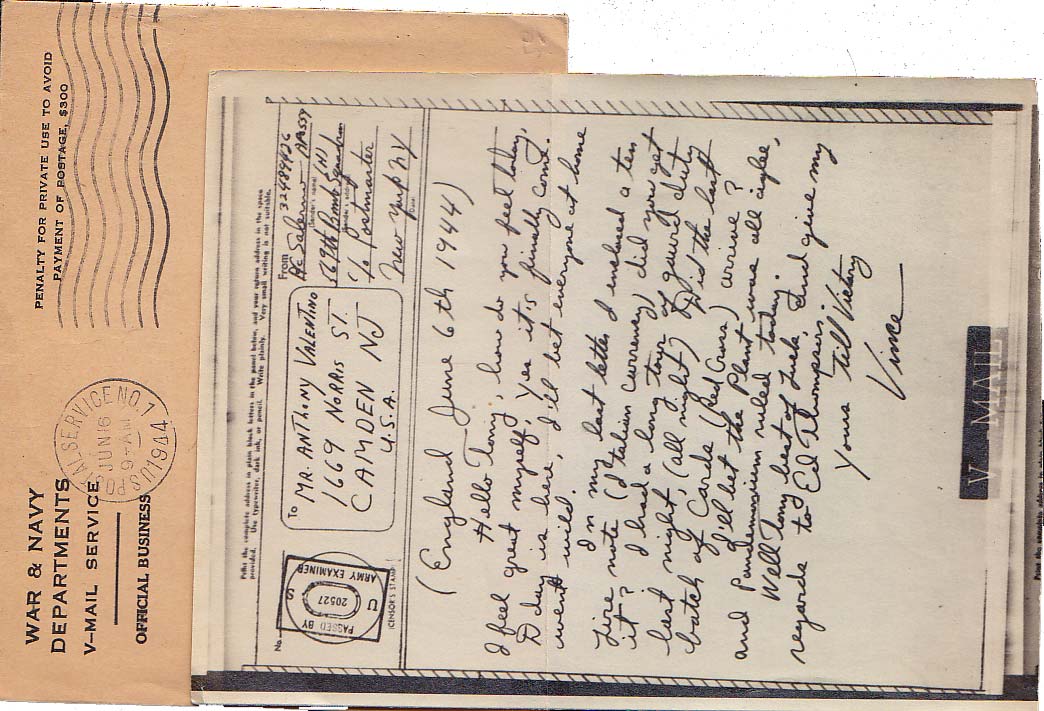 WAR & NAVY
DEPARTMENTS
V-MAIL SERVICE
OFFICIAL BUSINESS
U.S. POSTAL SERVICE NO. 1
JUN 16
9-AM
1944
PENALTY FOR PRIVATE USE TO AVOID
PAYMENT OF POSTAGE, $300
Print the complete address in plain block letters in the panel below, and your return address in the space
provided. Use typewriter, dark ink, or pencil. Write plainly. Very small writing is not suitable.
No.
PASSED BY
U S
20527
ARMY EXAMINER
(CENSOR'S STAMP)
To
MR. ANTHONY VALENTINO
1669 NORRIS ST.
CAMDEN NJ
U.S.A.
From
Pfc Salerno 32489426
(Sender's name)
569th Bomb Squadron (H)
(Sender's address)
c/o Postmaster
New York NY
(Date)
(England June 6th 1944)
Hello Tony, how do you feel today,
I feel great myself, Yes it's finally come.
D day is here, I'll bet everyone at home
went wild.
In my last letter I inclosed a ten
Lire note (Italian currency) did you get
it? I had a long tour of guard duty
last night, (all night) Did the last
batch of Cards (Red Cross) arrive?
I'll bet the Plant was all aglee,
and Pandemonium ruled today.
Well Tony best of luck, And give my
regards to Ed Thompson.
Yours till Victory
Vince
V MAIL